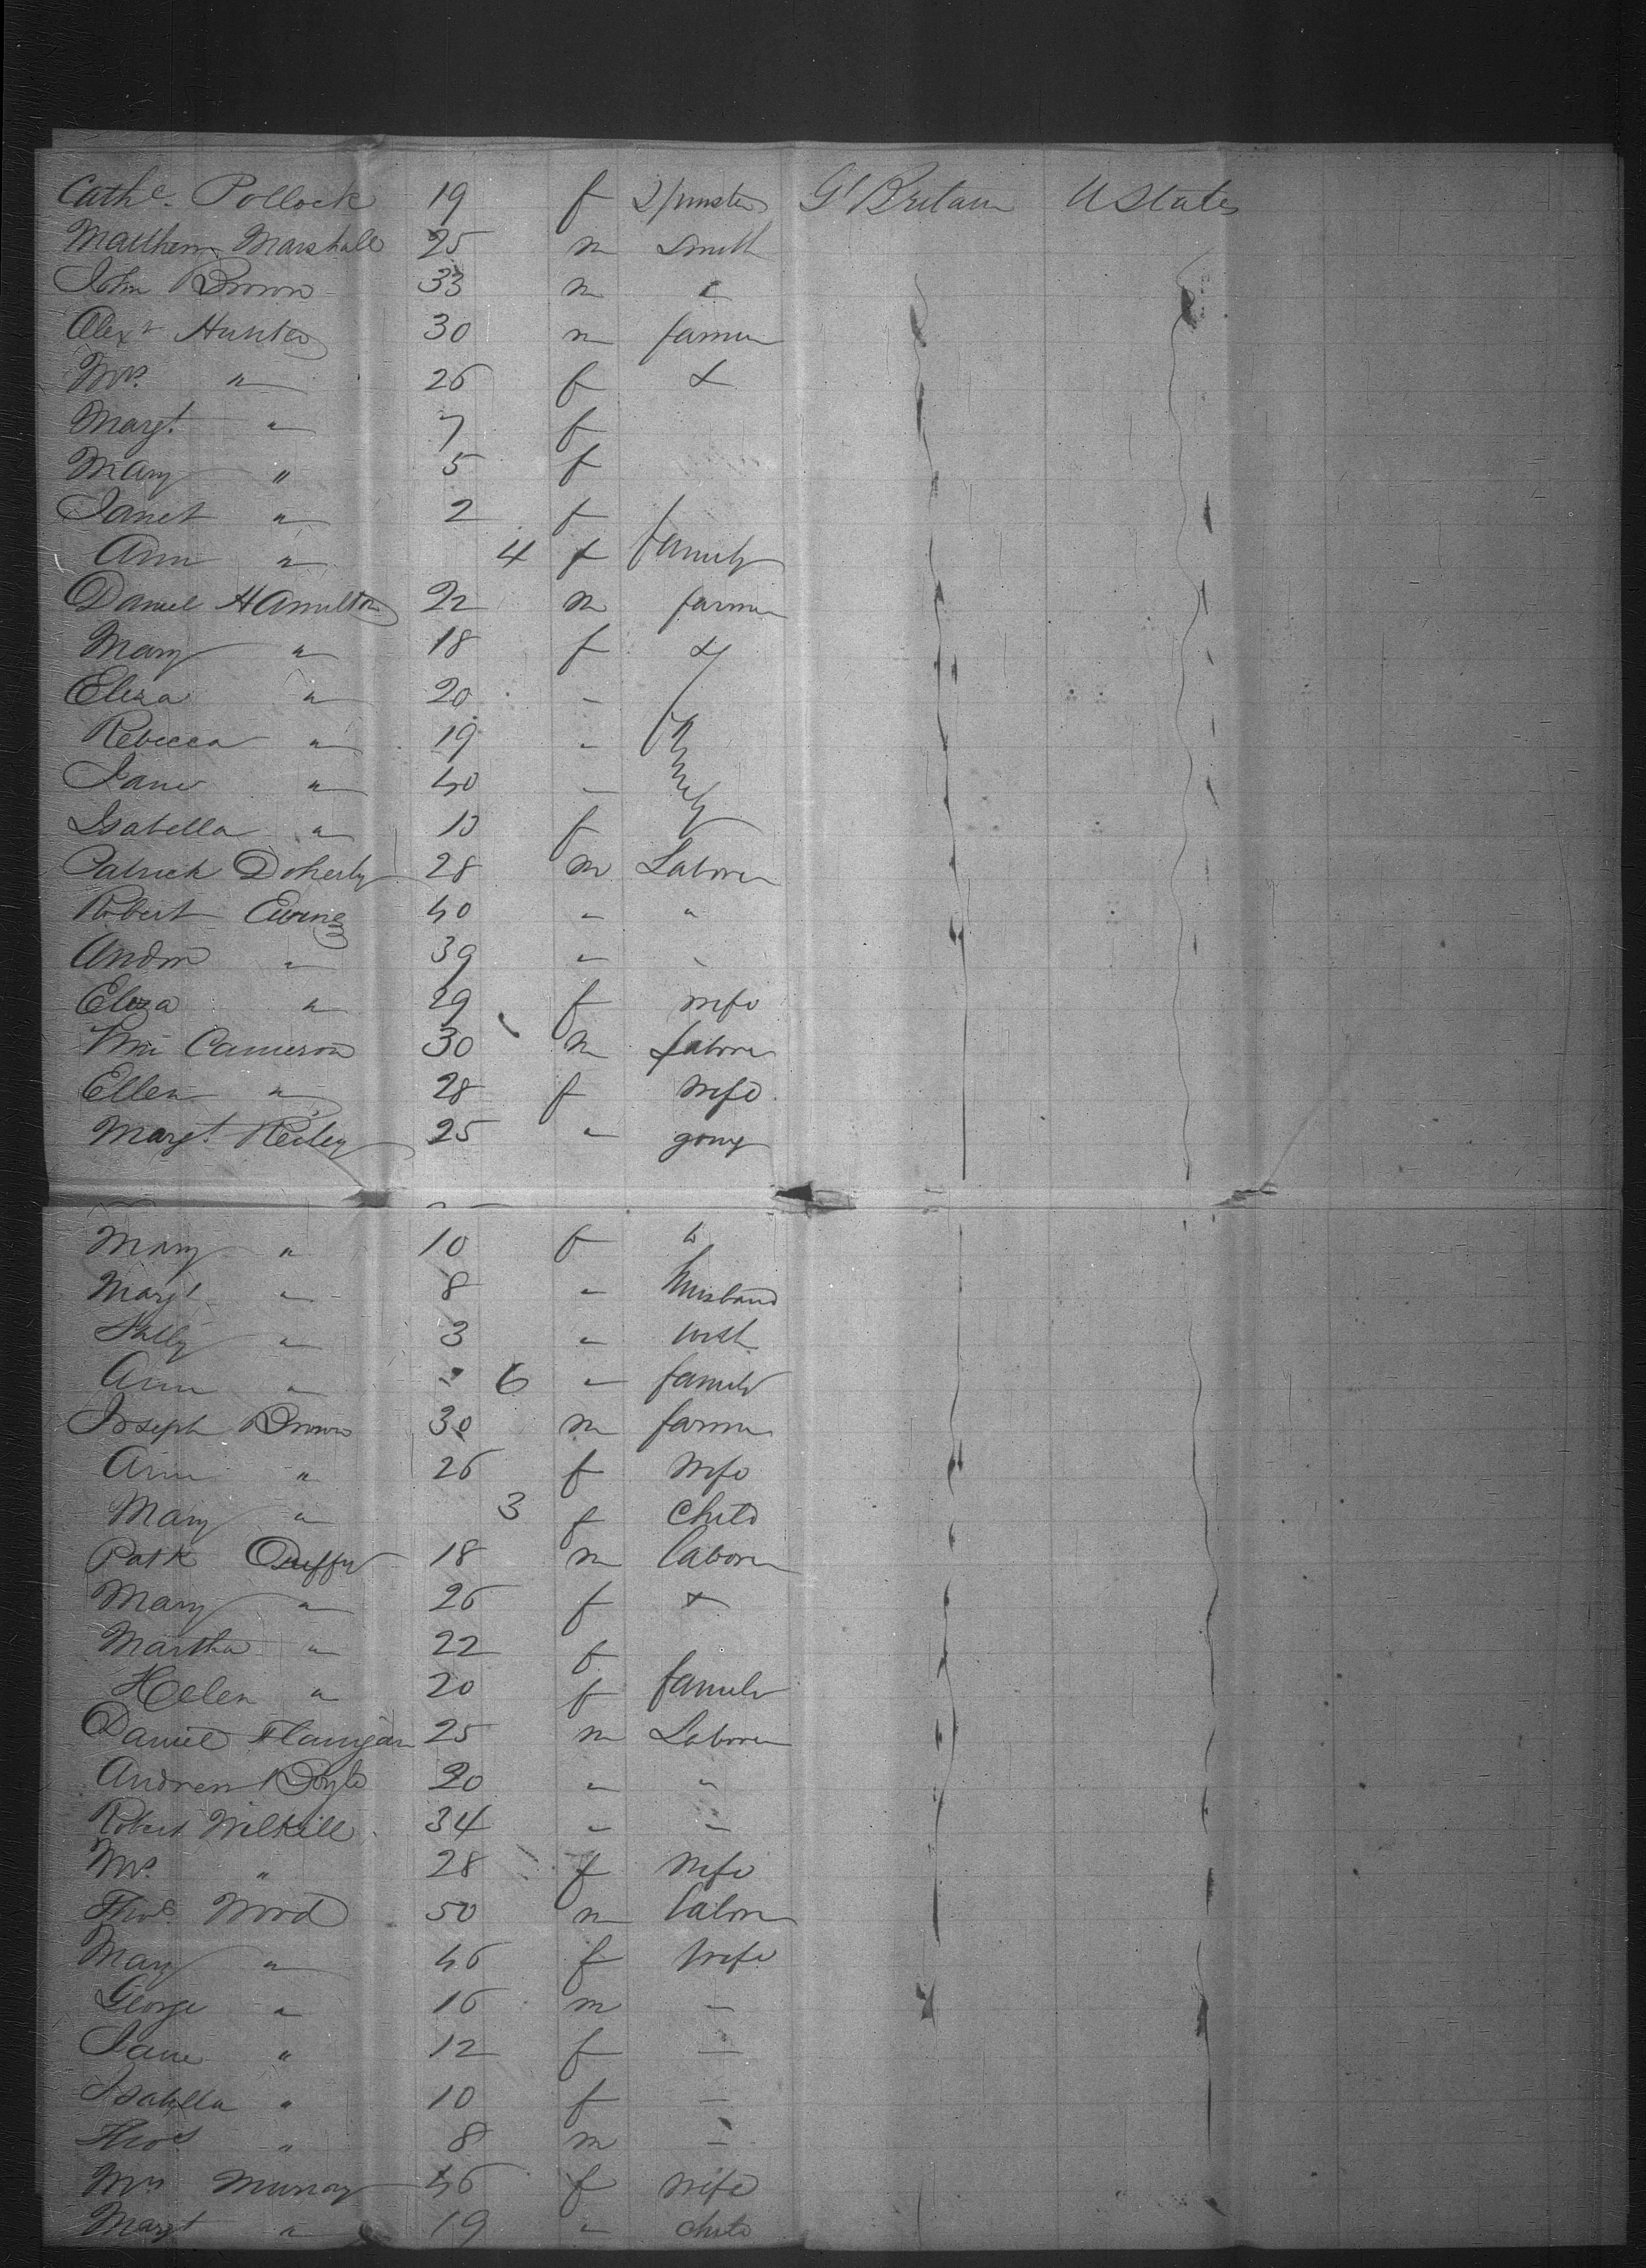 Cathe. Pollock 19 f Spinster Gt Britain U States
Matthew Marshall 25 m Smith
John Brown 33 m "
Alexr Hunter 30 m farmer
Mrs. " 26 f &
Margt. " 7 f
Mary " 5 f
Janet " 2 f
Ann " 4 f family
Daniel Hamilton 22 m farmer
Mary " 18 f &
Eliza " 20 "
Rebecca " 19 "
Jane " 40 " family
Isabella " 13 f
Patrick Doherty 28 m Laborer
Robert Ewing 40 " "
Andw " 39 " "
Eliza " 29 f wife
Wm Cameron 30 m Laborer
Ellen " 28 f wife
Margt. Reiley 25 " going
Mary " 10 f to
Margt " 8 " husband
Sally " 3 " with
Ann " 6 " family
Joseph Brown 30 m farmer
Ann " 26 f wife
Mary " 3 f child
Patk Duffy 18 m laborer
Mary " 26 f &
Martha " 22 f
Helen " 20 f family
Daniel Flanigan 25 m Laborer
Andrew Boyle 20 " "
Robert 34 " "
Mrs. " 28 f wife
Thos. Wood 50 m labor
Mary " 46 f wife
George " 16 m —
Jane " 12 f —
Isabella " 10 f —
Thos " 8 m —
Mrs Murray 46 f wife
Margt " 19 " child